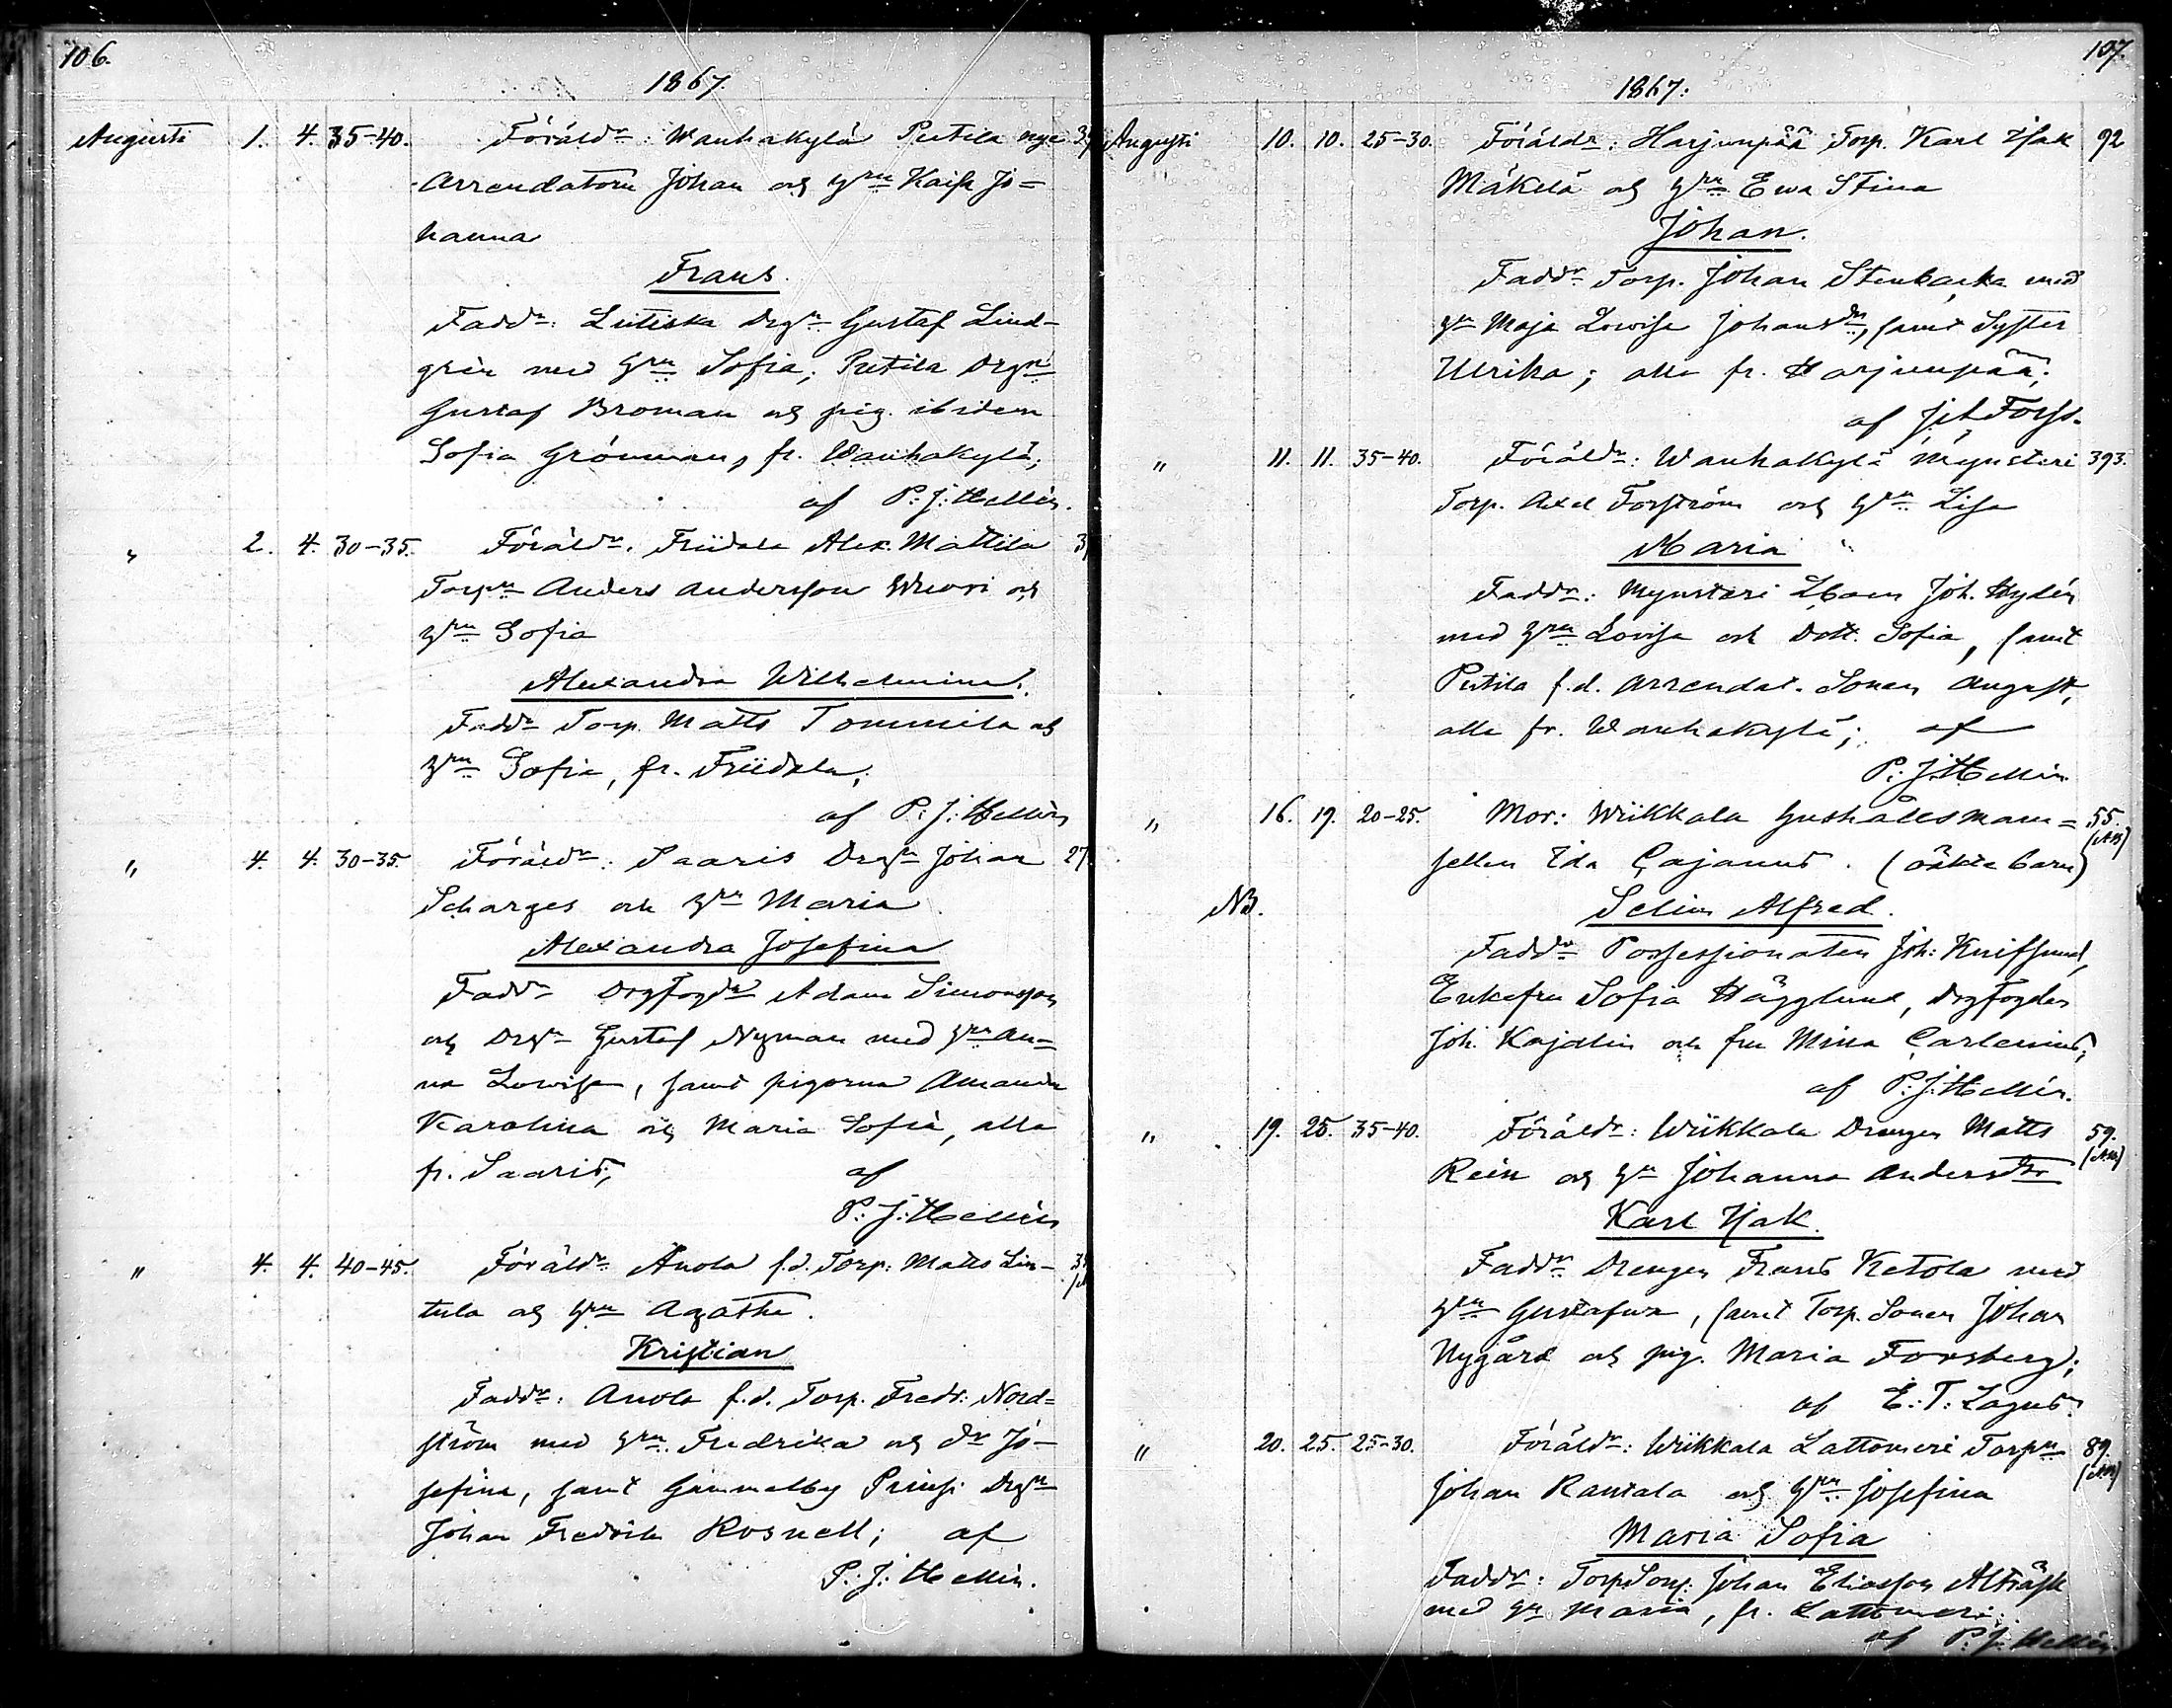 106.
1867.
Augusti 1. 4. 35-40. Föräldr: Wanhakylä Putila nye
Arrendatorn Johan och h:ru Kaisa Jo=
hanna
Frans.
Faddr: Lutiska Drgn Gustaf Lind-
grén med h:ru Sofia; Putila Drgn
Gustaf Broman och pig. ibidem
Sofia Grönman, fr. Wanhakylä;
af P. J. Hellén.
" 2. 4. 30-35. Föräldr. Friidala Alex. Mattila
Torpn Anders Andersson Wuori och
h:ru Sofia
Alexandra Wilhelmina.
Faddr Torp. Matts Tommila och
h:ru Sofia, fr. Friidala;
af P. J. Hellén
" 4. 4. 30-35. Föräldr: Saaris Drgn Johan 27
Scharges och h:ru Maria
Alexandra Josefina
Faddr Drgfogdn Adam Simonsson
och Drgn Gustaf Nyman med h:ru An=
na Lowisa, samt pigorna Amanda
Karolina och Maria Sofia, alla
fr. Saaris;
af
P. J. Hellén
" 4. 4. 40-45. Föräldr Anola f.d. Torp. Matts Lin-
tula och h:ru Agatha.
Kristian
Faddr: Anola f.d. Torp. Fredr: Nord=
ström med h:ru Fredrika och dr Jo-
sefina, samt Gammelby Prinsi Drgn
Johan Fredrik Rosnell; af
P. J. Hellén.
107.
1867.
Augusti 10. 10. 25-30. Föräldr: Harjunpää Torp. Karl Isak 92
Mäkelä och h:ru Ewa Stina
Johan.
Faddr Torp. Johan Stenbacka med
h:ru Maja Lowisa Johansdr, samt Syster
Ulrika; alla fr. Harjunpää;
af
" 11. 11. 35-40. Föräldr: Wanhakylä Mynsteri 393.
Torp. Axel Forsström och h:ru Lisa
Maria
Faddr: Mynsteri Joh. Hydén
med h:ru Lovisa och Dott. Sofia, samt
Putila f.d. Arrendat. Sonen August,
alla fr. Wanhakylä; af
P. J. Hellén
" 16. 19. 20-25. Mor: Wiikkala Hushållsmam= 55.
sellen Ida Cajanus. (oäkta barn)
NB.
Selim Alfred.
Faddr Possessionaten Joh: Knifsund,
Enkefru Sofia Hägglund, Drgfogden
Joh. Kajalin och fru Mina Carlenius;
af P. J. Hellén.
" 19. 25. 35-40. Föräldr: Wiikkala Drengen Matts 59.
Rein och h:ru Johanna Andersdtr
Karl Isak.
Faddr Drengen Frans Ketola med
h:ru Gustafwa, samt Torp. Sonen Johan
Nygård och pig. Maria Forsberg;
af E. T. Lagus.
" 20. 25. 25-30. Föräldr: Wiikkala Lattomeri Torpn 89.
Johan Rantala och h:ru Josefina
Maria Sofia
Faddr: Johan Eliasson Alträsk
med h:ru Maria, fr. Lattomeri.
af P. J. Hellén.